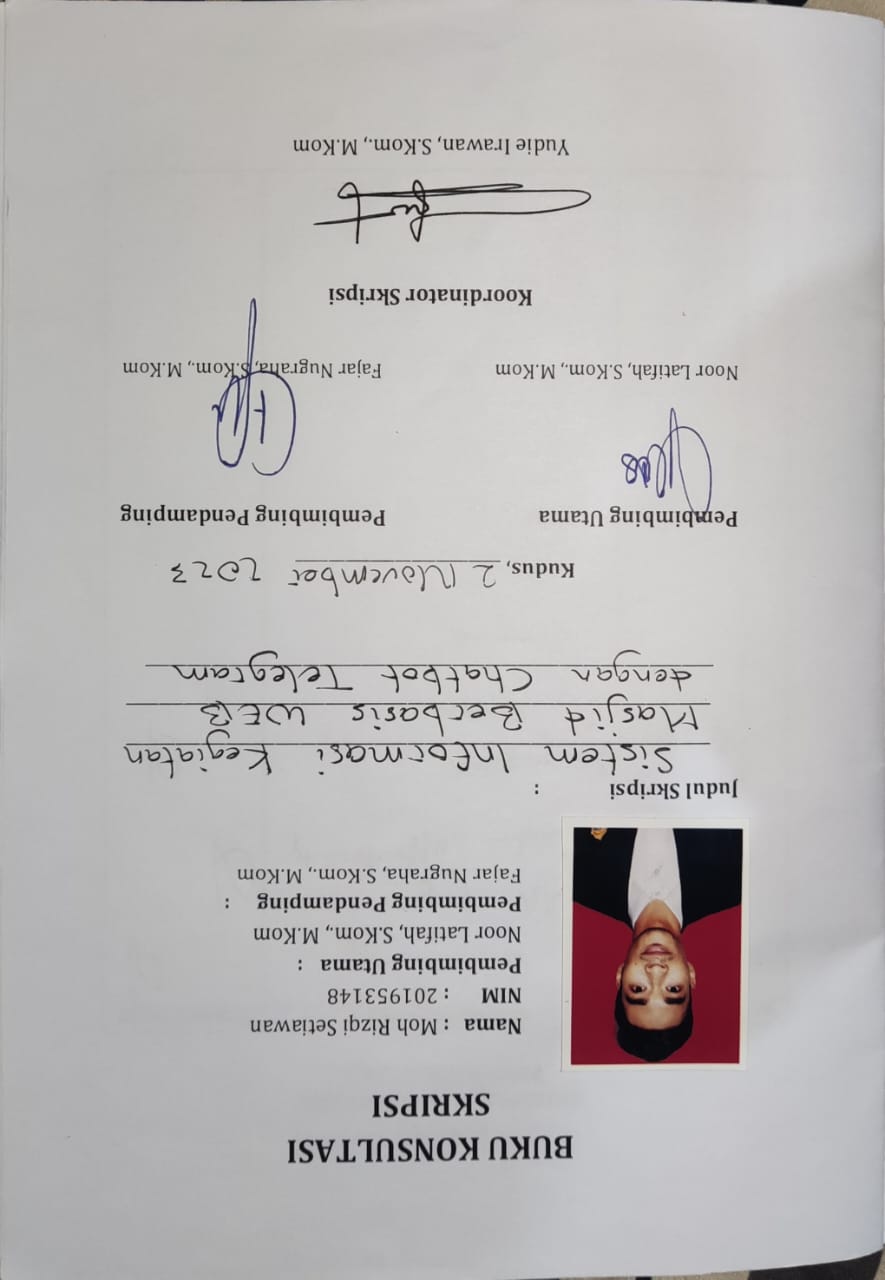 BUKU KONSULTASI
SKRIPSI
Nama : Moh Rizqi Setiawan
NIM : 201953148
Pembimbing Utama :
Noor Latifah, S.Kom., M.Kom
Pembimbing Pendamping :
Fajar Nugraha, S.Kom., M.Kom
Judul Skripsi :
Sistem Informasi Kegiatan
Masjid Berbasis WEB
dengan Chatbot Telegram
Kudus, 2 November 2023
Pembimbing Utama Pembimbing Pendamping
Noor Latifah, S.Kom., M.Kom Fajar Nugraha, S.Kom., M.Kom
Koordinator Skripsi
Yudie Irawan, S.Kom., M.Kom